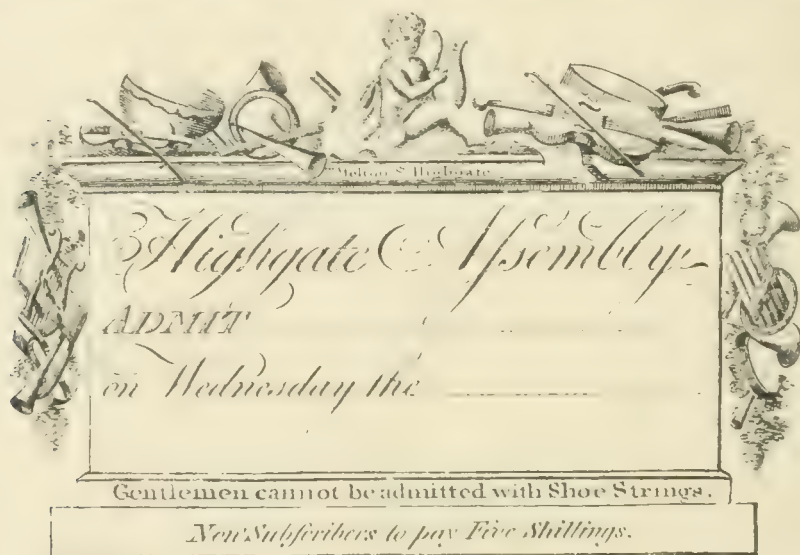 Melton Sc Highgate
Highgate Aſsembly
ADMIT
on Wednesday the
Gentlemen cannot be admitted with Shoe Strings.
Non Subſcribers to pay Five Shillings.